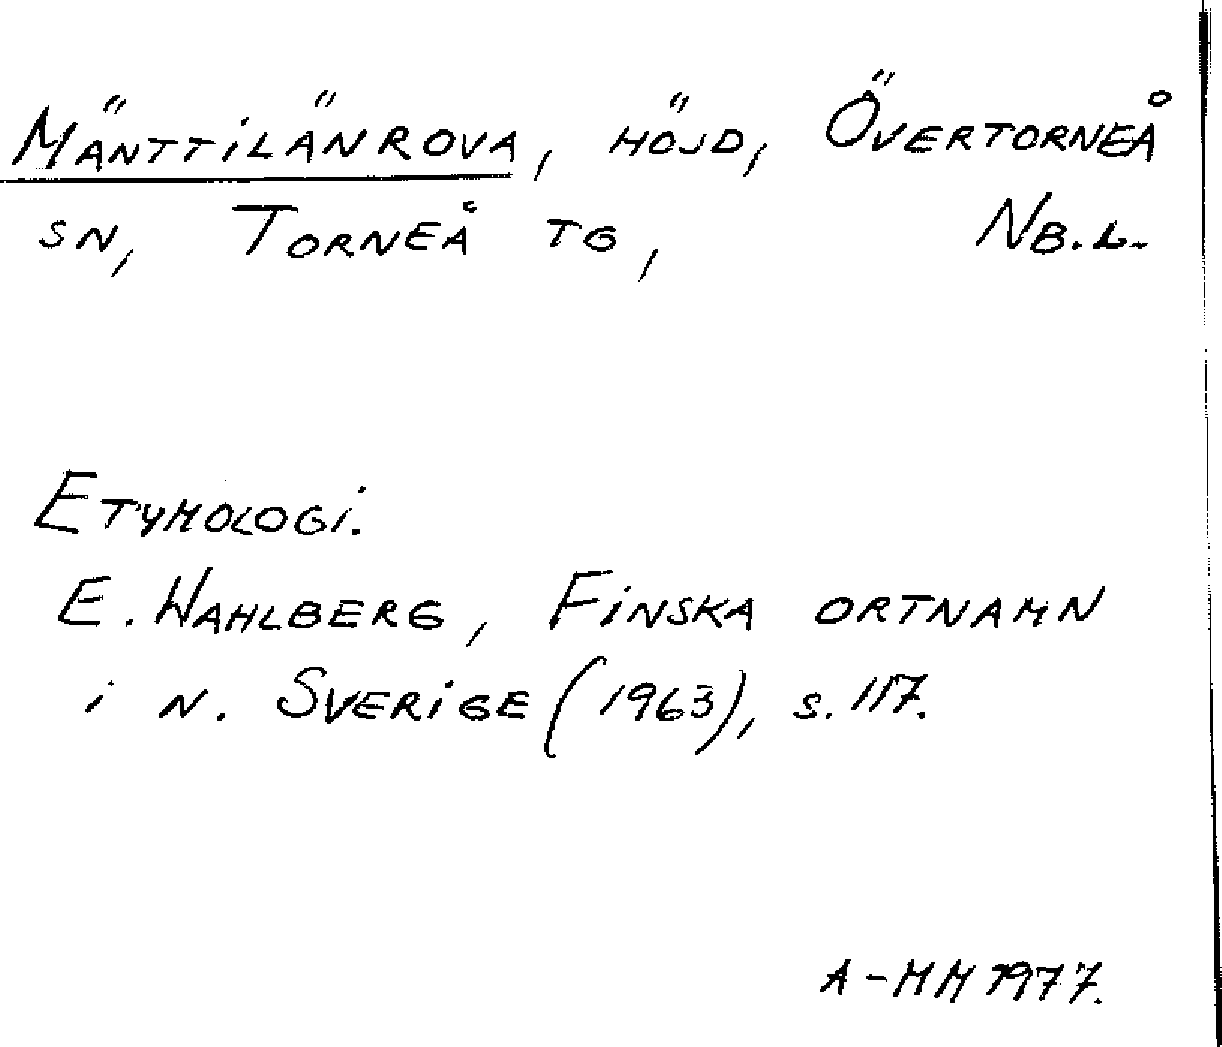 Mänttilänrova, höjd, Övertorneå
sn, Torneå tg, Nb.l.
Etymologi.
E. Wahlberg, Finska ortnamn
i n. Sverige (1963), s. 117.
A-MM 1977.